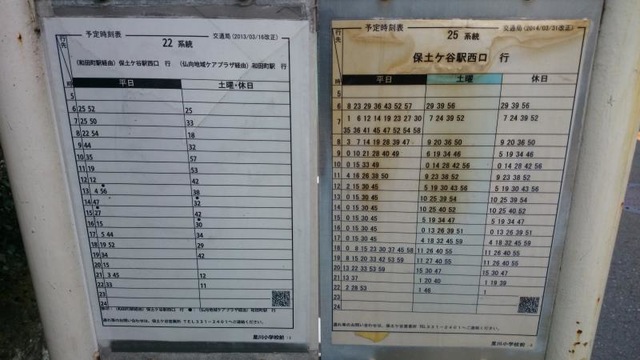 予定時刻表
交通局 (2013/03/16改正)
行先
22 系統
(和田町駅経由) 保土ケ谷駅西口 行 (仏向地域ケアプラザ経由) 和田町駅 行
時
平日
土曜・休日
5
6 25 52 25
7 22 50 25
8 22 54 33
9 44 32
10 35 57
11 19 53
12 12 42
13 4 56 38
14 47 32
15 27 42
16 30
17 5 44 34
18 19 52 29
19 34 42
20 15
21 3 45 12
22 33 11
23
24
星川小学校前
予定時刻表
交通局 (2014/03/31改正)
行先
25 系統
保土ケ谷駅西口 行
時
平日
土曜
休日
5
6 8 23 29 36 43 52 57 29 39 56 29 39 56
7 1 6 12 14 19 23 27 30 7 24 39 52 7 24 39 52
35 38 41 45 47 52 54 58
8 3 7 14 19 28 39 47 9 20 36 50 9 20 36 50
9 0 10 21 28 40 49 6 19 34 46 5 19 34 51
10 0 15 30 45 0 14 28 42 56 0 14 28 42 56
11 4 16 26 38 50 9 23 38 52 9 23 38 52
12 2 15 30 45 5 19 30 43 56 5 19 34 51
13 0 15 30 45 10 25 39 54 10 25 39 54
14 0 15 30 45 10 25 40 52 10 25 40 52
15 0 15 30 45 5 19 34 47 5 19 34 47
16 0 15 30 45 0 13 26 39 51 0 13 26 39 51
17 0 15 30 45 4 18 32 45 59 4 18 32 45 59
18 0 8 15 23 30 37 45 58 11 26 40 55 11 26 40 55
19 8 20 33 42 51 11 27 40 55 11 27 40 55
20 13 22 33 53 59 15 30 47 15 30 47
21 13 37 1 20 40 1 19 39
22 2 28 53 1 46 1
23
24
星川小学校前